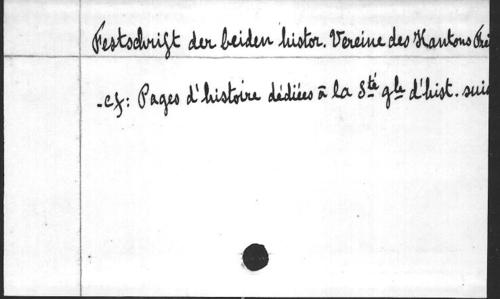 Festschrift der beiden histor. Vereine des Kantons Frei
-cf: Pages d'histoire dédiées à la Sté gle d'hist. suis